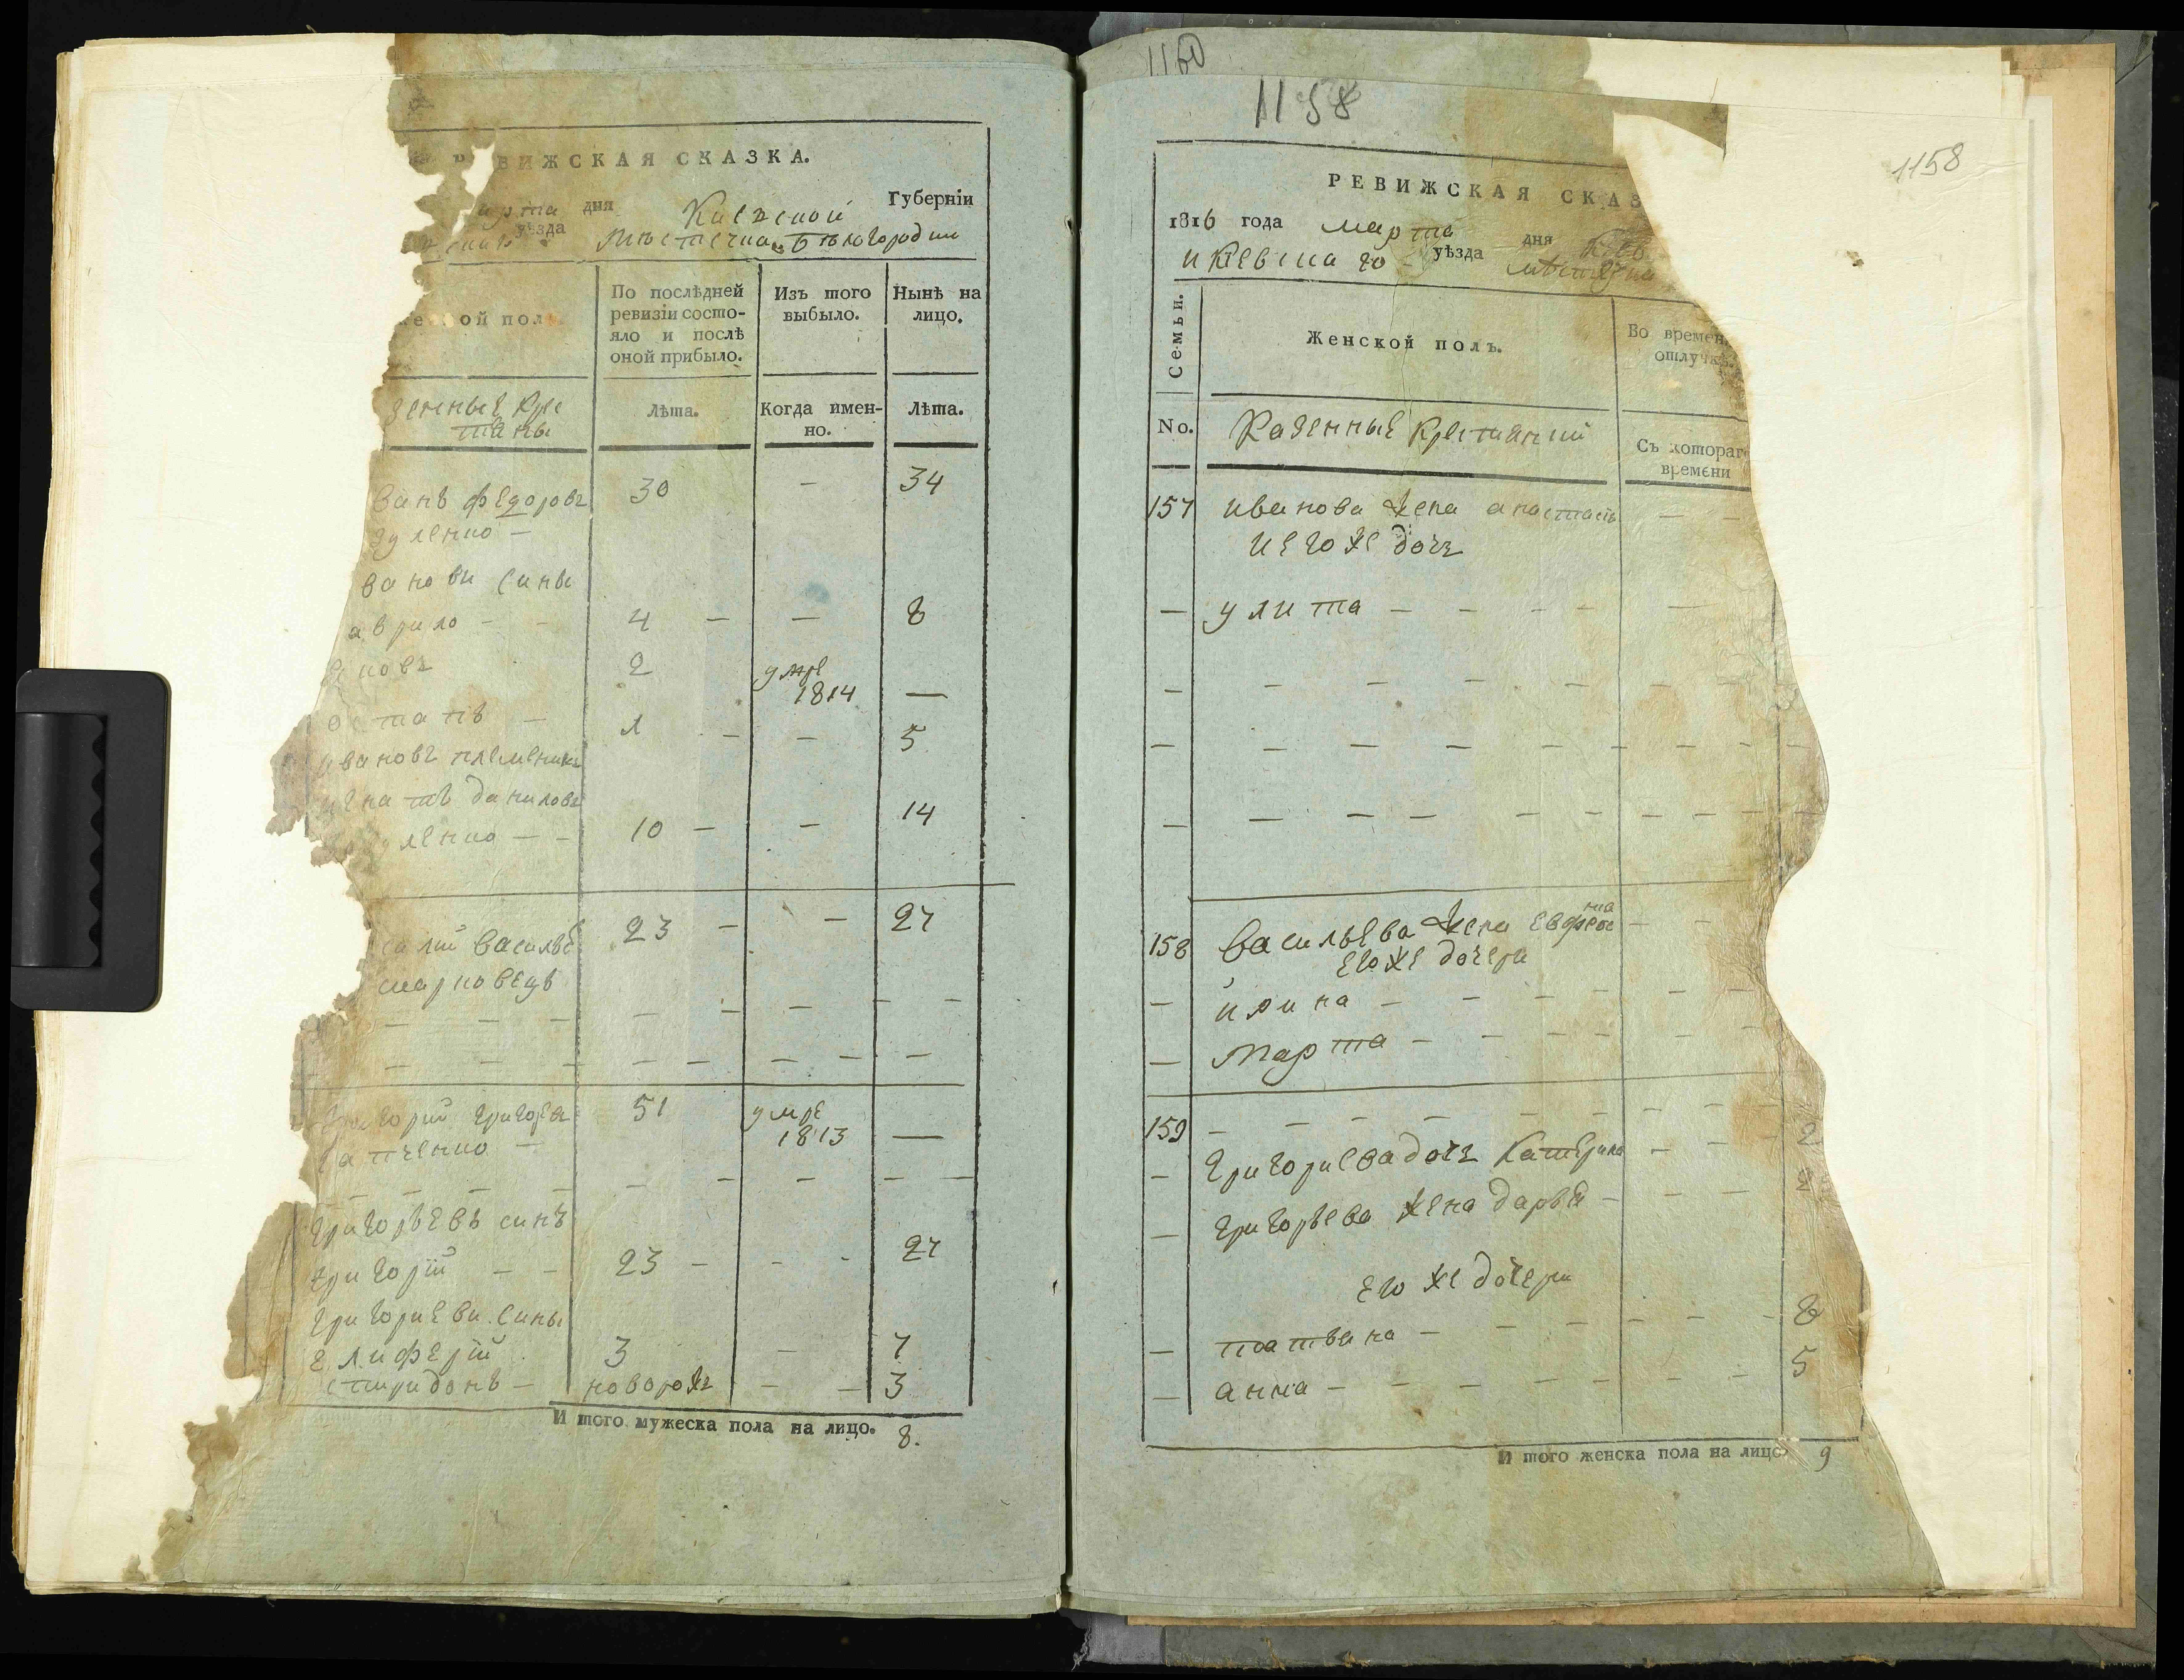 ВИЖСКАЯ СКАЗКА.
арта дня Киевской Губерніи
уѣзда Мѣстечка Бѣлогородки
ской полъ
По послѣдней ревизіи состояло и послѣ оной прибыло.
Изъ того выбыло.
Нынѣ на лицо.
зенные кре
тяны
Лѣта.
Когда именно.
Лѣта.
ванъ федоровъ 30 - 34
уленко -
ванови сини
аврило - - 4 - - 8
2 умре
1814 —
остапъ - 1 - - 5
ивановъ племеникъ
игнатъ даниловъ
уленко - - 10 - - 14
силий василье 23 - - 27
- - - - - - - -
- - - - - - - -
григорий григорев 51 умре
1813 —
- - - - - - - - -
григорьевъ синъ
григорій - - 23 - - - 27
григориеви сины
елиферій 3 - 7
спиридонъ - новорож - - 3
И того мужеска пола на лицо. 8.
1160
1158
1158
РЕВИЖСКАЯ СКАЗ
1816 года марта дня Киев
и Киевскаго уѣзда мѣстечка
Семьи.
Женской полъ.
Во времен. отлучкѣ.
No.
Казенные крестянки
Съ котораг времени
157 иванова жена анастасія - -
и его же дочъ
— улита - - - - -
- - - - - - -
- - - - - - - - -
- - - - - - - - -
158 васильева жена Евфрос
ниа - -
его же дочери
— ирина - - - - - -
— Марта - - - - - -
159 - - - - - - - - - 2
- григориева дочъ Катерина - - -
— григорьева жена дарья - - - -
его же дочери
— - - - - - - 8
— анна - - - - - - - 5
И того женска пола на лицо 9